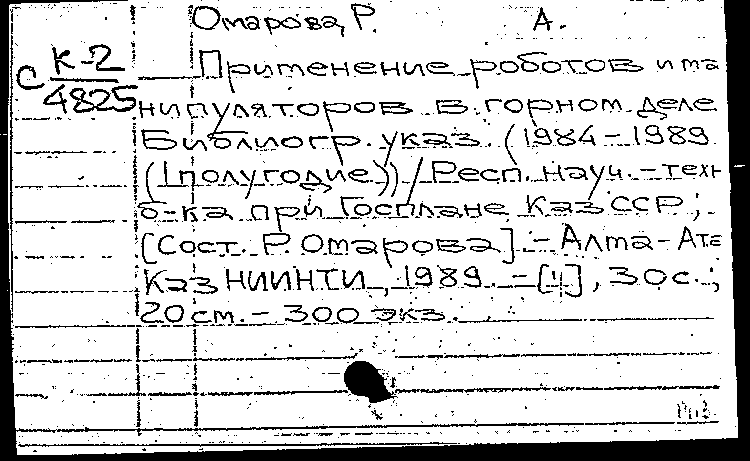 Омарова, Р. А.
с К-2/4825
Применение роботов и ма
нипуляторов в горном деле
Библиогр. указ. (1984-1989
(I полугодие)) / Респ. науч.-техн
б-ка при Госплане КазССР ;
[Сост. Р. Омарова]. - Алма-Ата
КазНИИНТИ, 1989. - [4], 30 с. ;
20 см. - 300 экз.